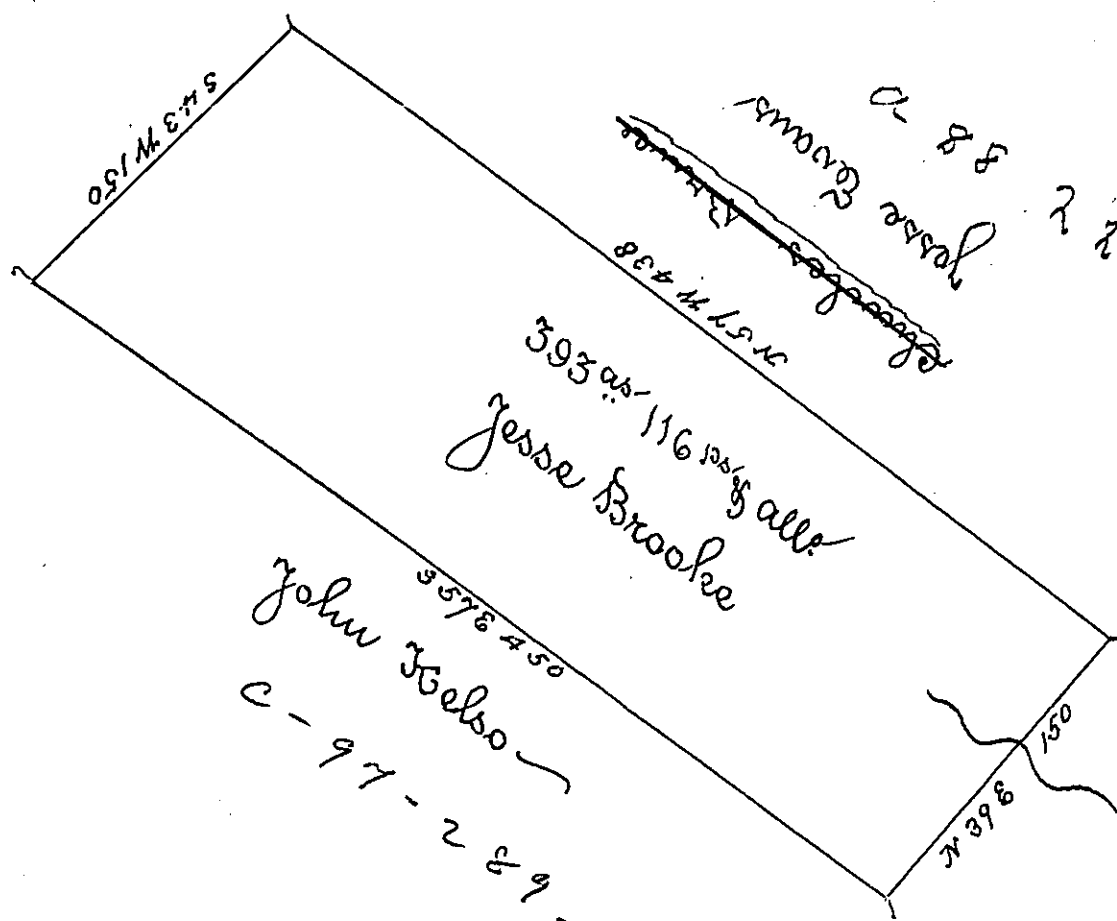 S 43 W 150
Jesse Evans
N 57 W 438
393 as 116 ps & allce
Jesse Brooke
S 57 E 450
John Kelso
C - 97 - 289
N 39 E 150